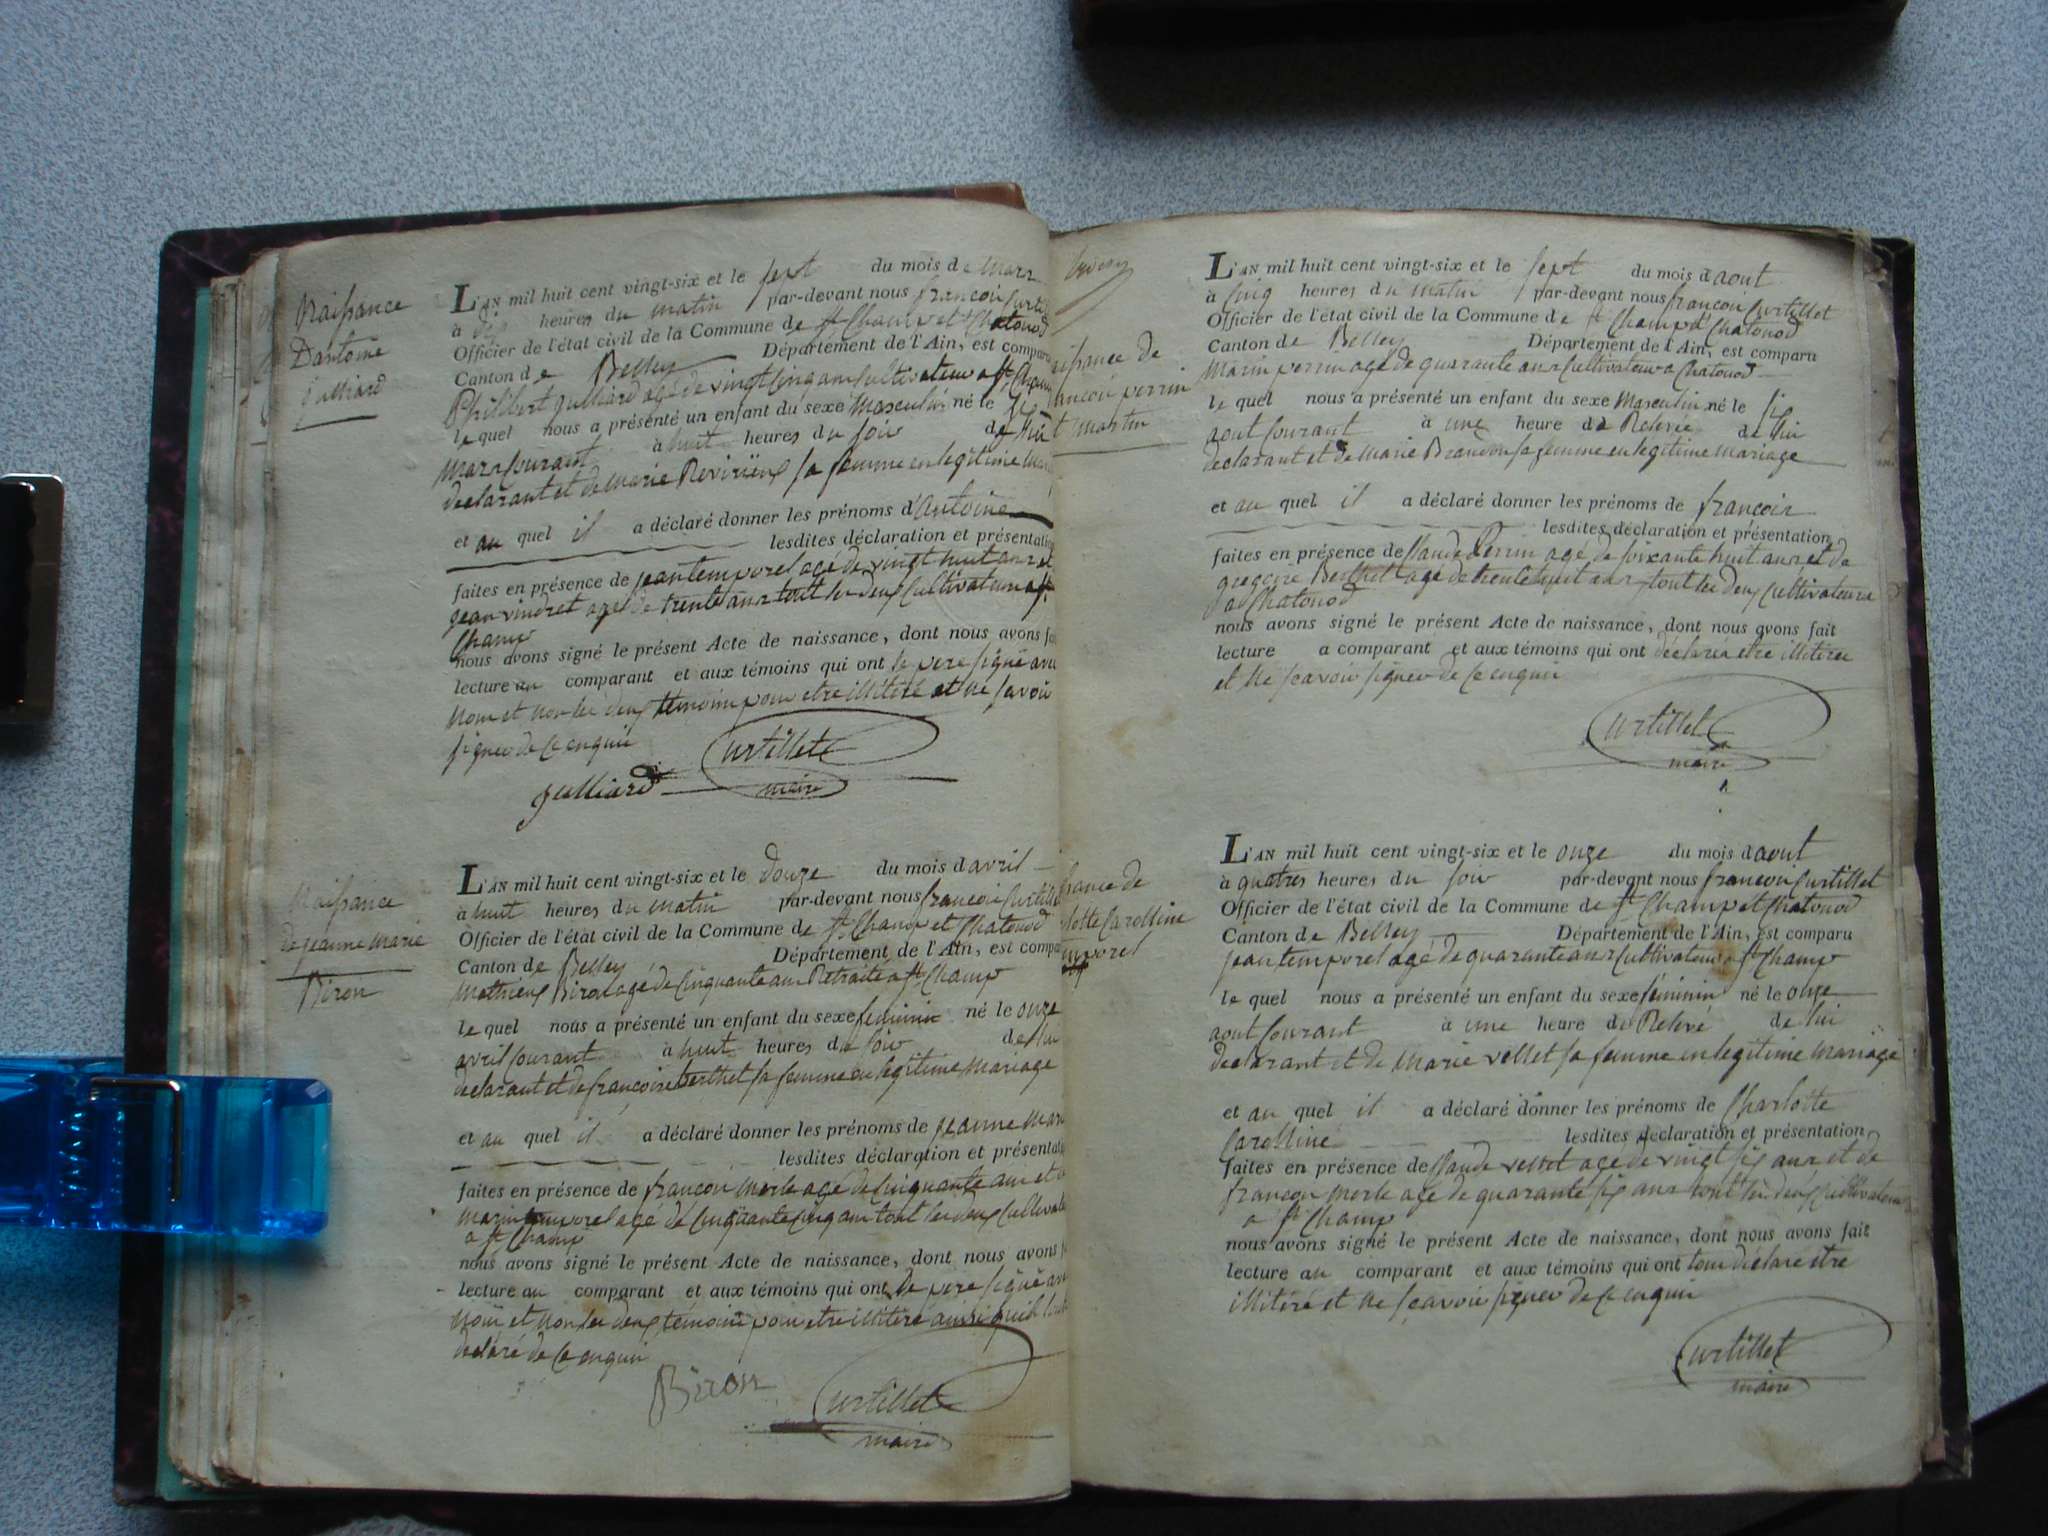 Naissance
Dantoine
Julliard
L'AN mil huit cent vingt-six et le sept du mois de mars
à dix heures du matin par-devant nous francois Curtil
Officier de l'état civil de la Commune de St Champ et Chatonod
Canton de Belley Département de l'Ain, est comparu
Philibert Julliard agé de vingt cinq ans Cultivateur a St Champ
le quel nous a présenté un enfant du sexe Masculin né le
Mars Courant à huit heures du soir de lui
declarant et de marie Reviriens sa femme en legitime Mar
et au quel il a déclaré donner les prénoms d'Antoine
lesdites déclaration et présentation
faites en présence de jean temporel agé de vingt huit ans et
jean vindret agé de trente ans tout les deux Cultivateurs a St
Champ
nous avons signé le présent Acte de naissance, dont nous avons fai
lecture au comparant et aux témoins qui ont le pere signé avec
Nous et non les deux temoins pour etre illitéré et ne savoir
signer de ce enquis
Curtillet
Julliard maire
Naissance
de jeanne marie
Biron
L'AN mil huit cent vingt-six et le douze du mois d avril
à huit heures du matin par-devant nous francois Curtille
Officier de l'état civil de la Commune de St Champ et Chatonod
Canton de Belley Département de l'Ain, est compa
Mathieux Biron agé de Cinquante ans Retraité a St Champ
le quel nous a présenté un enfant du sexe feminin né le onze
avril Courant à huit heures du soir de lui
declarant et de francoise berthet sa femme en legitime Mariage
et au quel il a déclaré donner les prénoms de jeanne mari
lesdites déclaration et présentati
faites en présence de francois merle agé de Cinquante ans et
marin temporel agé de Cinquante cinq ans tout les deux Cultivate
a St Champ
nous avons signé le présent Acte de naissance, dont nous avons f
lecture au comparant et aux témoins qui ont le pere signé av
Nous et non les deux témoins pour etre illitéré ainsi quils l'ont
declaré de ce enquis
Biron
Curtillet
maire
issance de
ancois perrin
t martin
L'AN mil huit cent vingt-six et le sept du mois d aout
à Cinq heures du matin par-devant nous francois Curtillet
Officier de l'état civil de la Commune de St Champ d Chatonod
Canton de Belley Département de l'Ain, est comparu
Marin perrin agé de quarante ans Cultivateur a Chatonod
le quel nous a présenté un enfant du sexe Masculin né le six
aout Courant à une heure de Relevée de lui
declarant et de Marie Brandon sa femme en legitime mariage
et au quel il a déclaré donner les prénoms de francois
lesdites déclaration et présentation
faites en présence de Claude Perrin agé de soixante huit ans et de
gregoire Berthet agé de trente huit ans tout les deux Cultivateurs
a Chatonod
nous avons signé le présent Acte de naissance, dont nous avons fait
lecture a comparant et aux témoins qui ont déclarés etre illitéré
et ne scavoir signer de ce enquis
Curtillet
maire
ssance de
lotte Carolline
mporel
L'AN mil huit cent vingt-six et le onze du mois d aout
à quatres heures du soir par-devant nous francois Curtillet
Officier de l'état civil de la Commune de St Champ et Chatonod
Canton de Belley Département de l'Ain, est comparu
jean temporel agé de quarante ans Cultivateur a St Champ
le quel nous a présenté un enfant du sexe feminin né le onze
aout Courant à une heure de Relevé de lui
declarant et de Marie vellet sa femme en legitime Mariage
et au quel il a déclaré donner les prénoms de Charlotte
Carolline lesdites déclaration et présentation
faites en présence de Claude vellet agé de vingt six ans et de
francois merle agé de quarante six ans tout les deux Cultivateurs
a St Champ
nous avons signé le présent Acte de naissance, dont nous avons fait
lecture au comparant et aux témoins qui ont tous déclare etre
illitéré et ne scavoir signer de ce enquis
Curtillet
maire